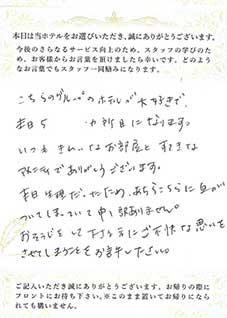 本日は当ホテルをお選びいただき、誠にありがとうございます。
今後のさらなるサービス向上のため、スタッフの学びのため、お客様からお言葉を頂けましたら幸いです。どのようなお言葉でもスタッフ一同励みになります。
こちらのグループのホテルが大好きで、
5 カ所目になります。
いつもきれいなお部屋とすてきな
アメニティでありがとうございます。
生理だったため、あちらこちらに血が
ついてしまっていて申し訳ありません。
おそうじをして下さる方にご不快な思いを
させてしまうことをお許しください。
ご記入いただき誠にありがとうございます。お帰りの際に
フロントにお持ち下さい。※このまま置いてお帰りになら
れても構いません。